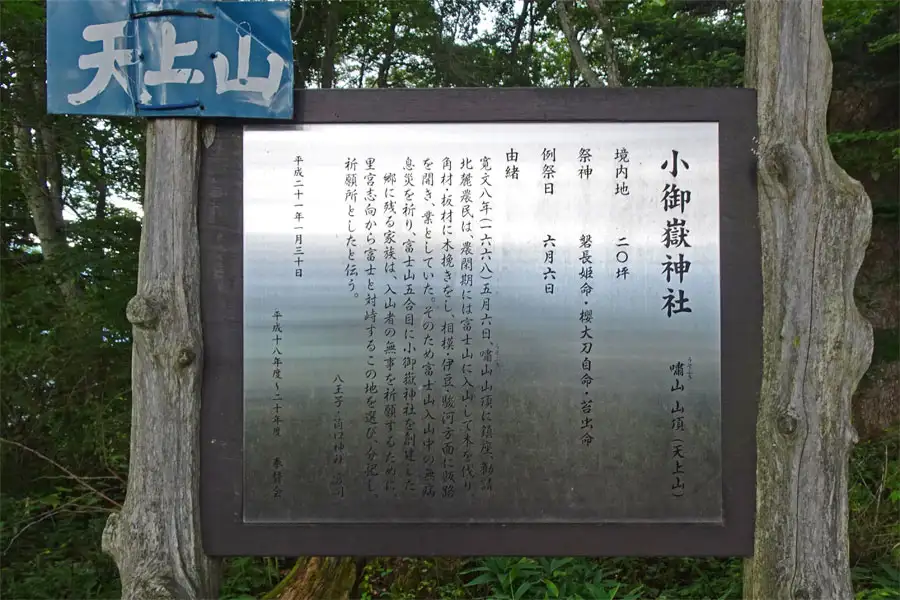 天上山
小御嶽神社
嘯山 山頂(天上山)
境内地 二〇坪
祭神 磐長姫命・櫻大刀自命・苔虫命
例祭日 六月六日
由緒
寛文八年(一六六八)五月六日、嘯山山頂に鎮座、勧請
北麓農民は、農閑期には富士山に入山して木を伐り
角材・板材に木挽きをし、相模・伊豆・駿河方面に販路
を開き、業としていた。そのため富士山入山中の無病
息災を祈り、富士山五合目に小御嶽神社を創建した
郷に残る家族は、入山者の無事を祈願するために
里宮志向から富士と対峙するこの地を選び、分祀し、
祈願所としたと伝う。
平成二十一年一月三十日
平成十八年度~二十年度 奉賛会